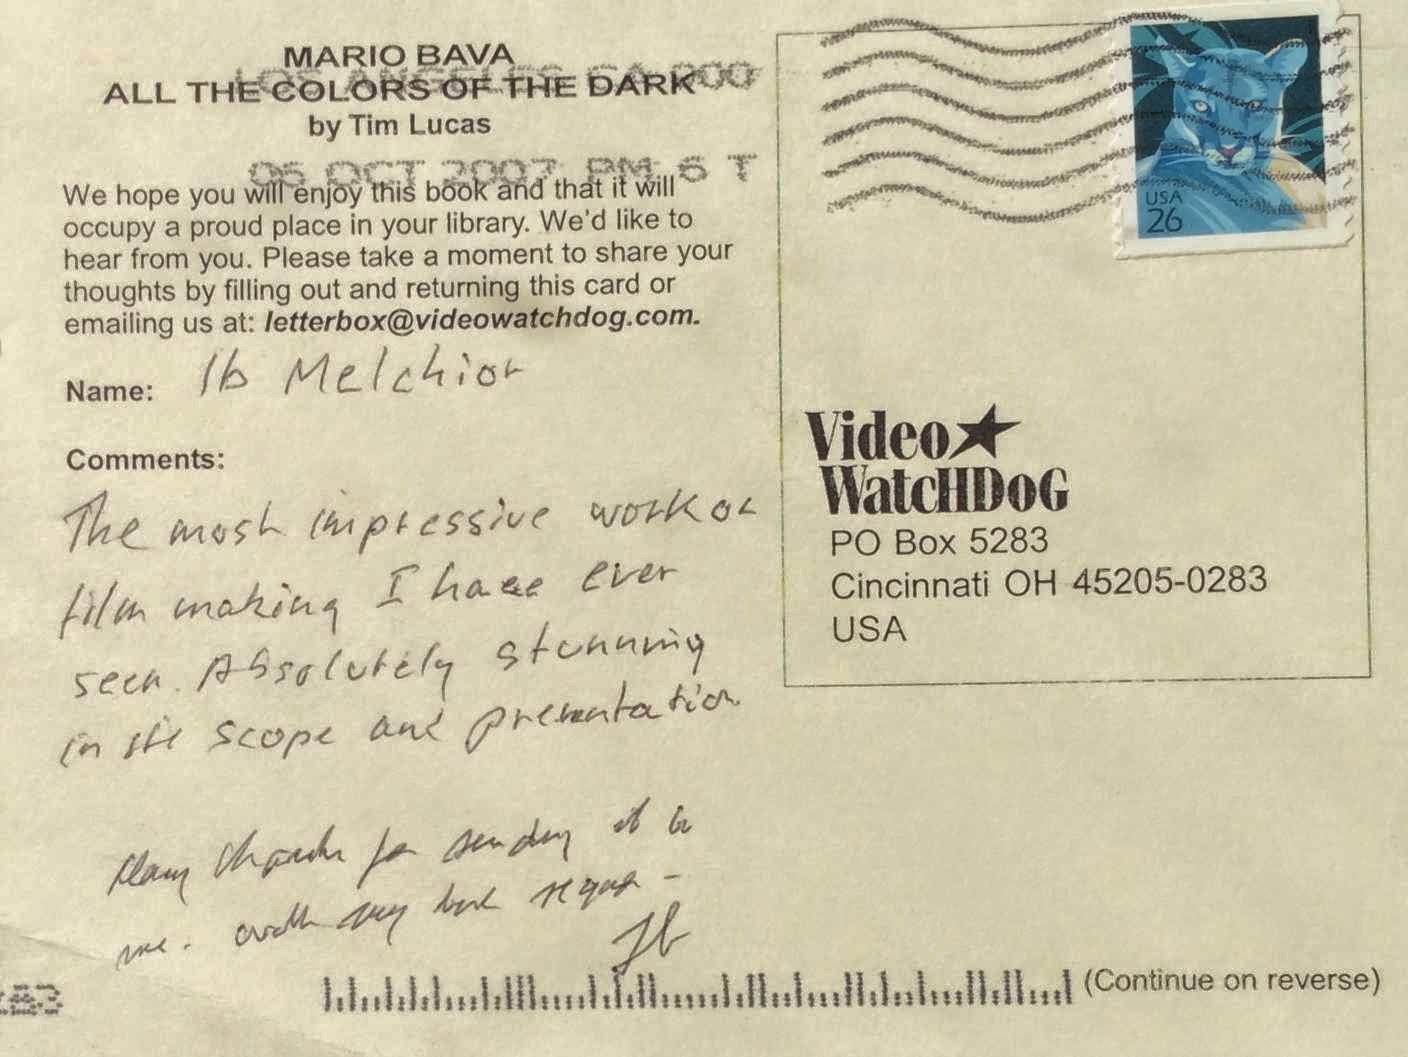 MARIO BAVA
ALL THE COLORS OF THE DARK
by Tim Lucas
LOS ANGELES CA 900
05 OCT 2007 PM 6 T
We hope you will enjoy this book and that it will
occupy a proud place in your library. We'd like to
hear from you. Please take a moment to share your
thoughts by filling out and returning this card or
emailing us at: letterbox@videowatchdog.com.
Name: Ib Melchior
Comments:
The most impressive work on
film making I have ever
seen. Absolutely stunning
in its scope and presentation
Many thanks for sending it to
me. with my best regards -
Ib
USA
26
Video
WatcHDoG
PO Box 5283
Cincinnati OH 45205-0283
USA
(Continue on reverse)